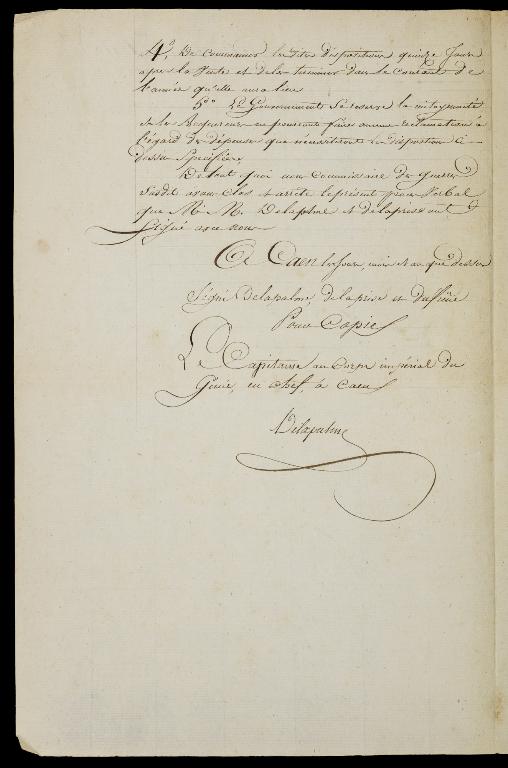 4°. De commencer les dites dispositions quinze Jours
après la Vente et de les terminer dans le Courant de
l'année qu'elle aura lieu
5°. Le Gouvernement Se reserve la mitoyenneté
et les acquereurs ne pourront faire aucune reclamation à
l'égard des dépenses que nécessitront les dispositions Ci-
dessus Spécifiées
De tout quoi nous Commissaire des guerres
Susdit avons Clos et arreté le présent procès Verbal
que M.rs Delapalme et delaprise ont
Signé avec nous
A Caen les Jour, mois et an que dessus
Signé Delapalme, delaprise et
Pour Copie
Le Capitaine au Corps impérial du
Génie, en chef, à Caen
Delapalme